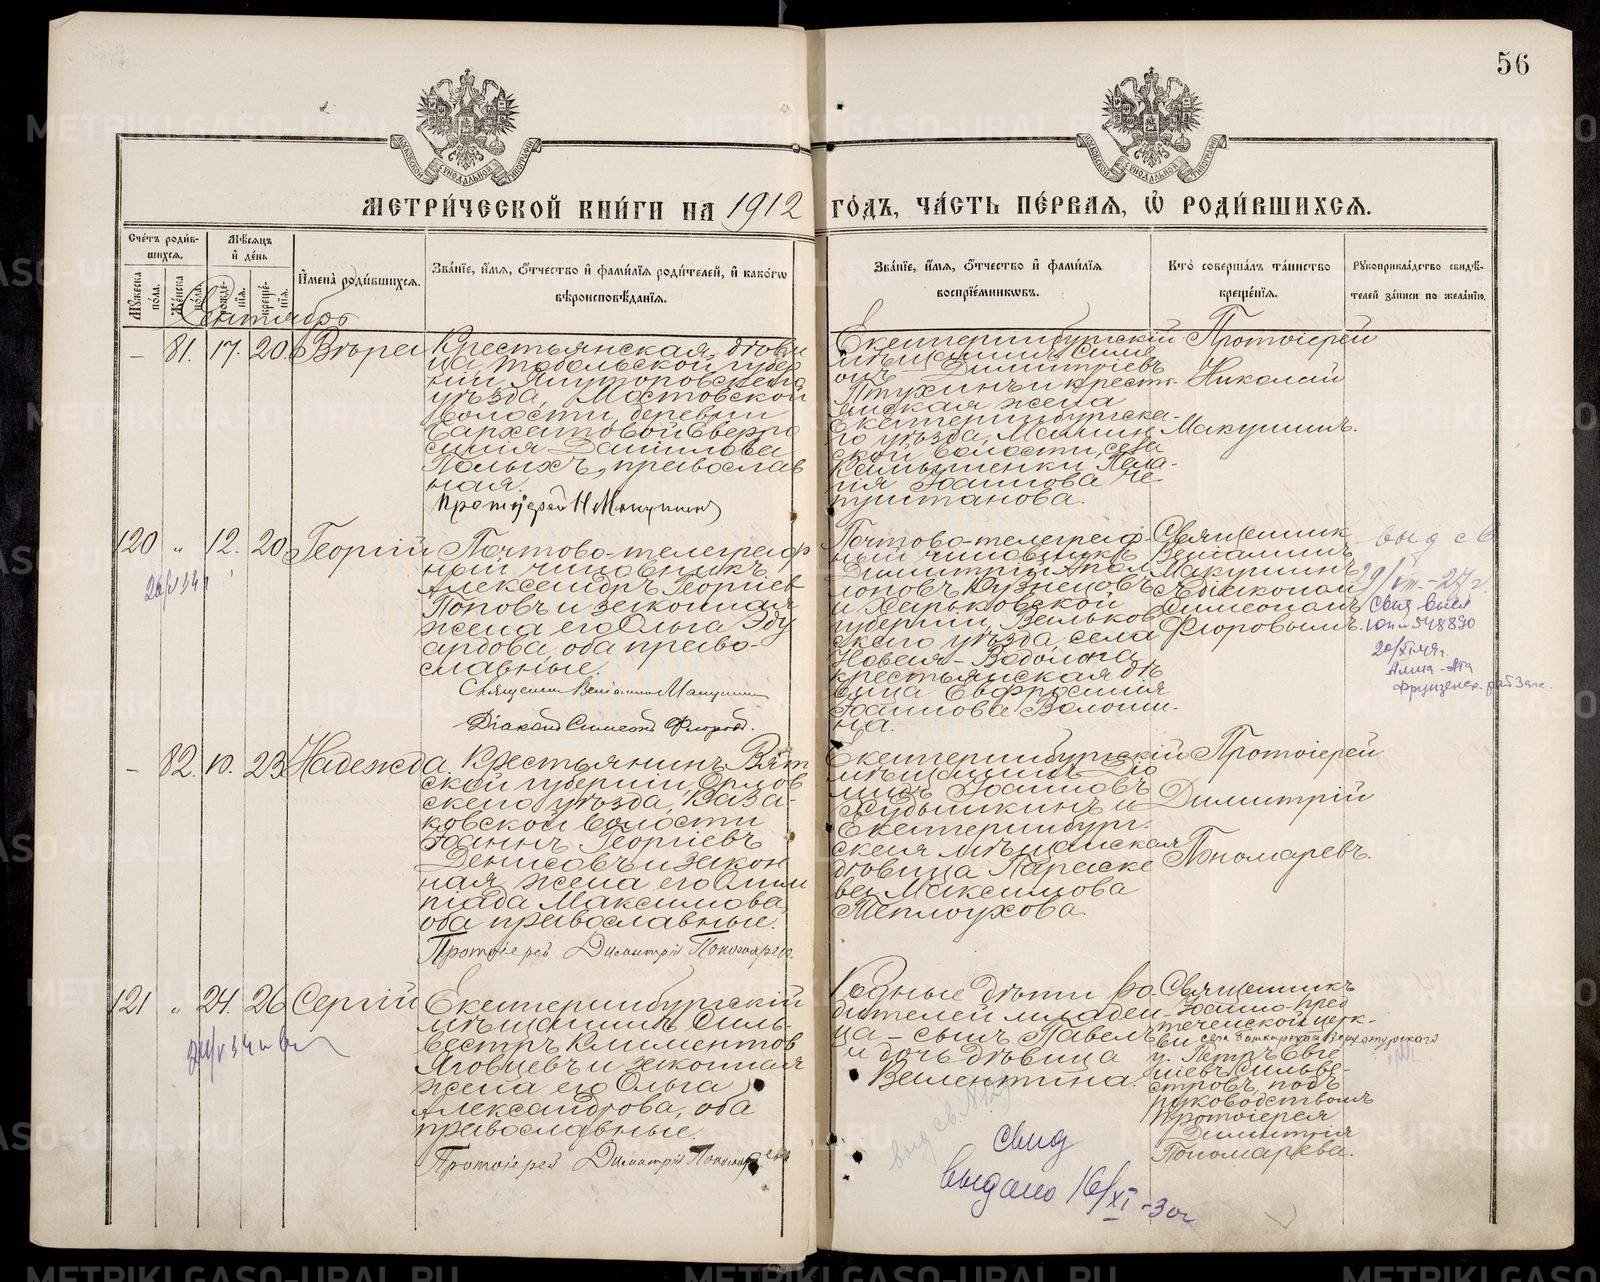 56
МЕТРИ́ЧЕСКОЙ КНИ́ГИ НА 1912 ГО́ДЪ, ЧА́СТЬ ПЕ́РВАЯ, Ѡ РОДИ́ВШИХСЯ.
Сче́тъ роди́в-
шихся.
Мѣ́сяцъ
и́ де́нь
Му́жеска по́ла.
Же́нска по́ла.
рожде́-
нія.
креще́-
нія.
И́мена роди́вшихся.
Зва́ніе, и́мя, о́тчество и́ фами́лія роди́телей, и́ како́гѡ
вѣроисповѣ́данія.
Зва́ніе, и́мя, о́тчество и́ фами́лія
воспріе́мникѡвъ.
Кто̀ соверша́лъ та́инство
креще́нія.
Рукоприкла́дство свидѣ́-
телей за́писи по жела́нію.
Сентябрь
– 81. 17. 20. Вѣра
Крестьянская дѣви
ца Тобольской губер
ніи Ялуторовскаго
уѣзда, Мостовской
волости, деревни
Евфро
синія Данилова
Полыхъ, православ
ная.
Протоіерей Н Макушинъ
Екатеринбургскій
мѣщанинъ Симе
онъ Димитріевъ
Птухинъ и кресть-
янская жена
Екатеринбургска-
го уѣзда, Мамин
ской волости, села
Пела-
гія Іоаннова Че
пуштанова.
Протоіерей
Николай
Макушинъ.
120 „ 12. 20 Георгій
Почтово-телеграф
ный чиновникъ
Александръ Георгіев
Поповъ и законная
жена его Ольга Эду
ардова, оба право-
славные.
Священникъ Веніаминъ Макушинъ
Діаконъ Симеонъ Флоровъ.
Почтово-телеграф
ный чиновникъ
Димитрій Апол
лоновъ Кузнецовъ
и Харьковской
губерніи, Валков
скаго уѣзда, села
Новая-Водолага
крестьянская дѣ
вица Евфросинія
Іоаннова Волоши-
на.
Священник
Веніаминъ
Макушинъ
съ діакономъ
Симеономъ
Флоровымъ.
выд св
29/VIII-27 г.
Свид выд
548890
20/XI 49г
Алма-Ата
Фрунзенск. рай Загс.
– 82. 10. 23 Надежда
Крестьянинъ Вят
ской губерніи, Орлов
скаго уѣзда, Каза-
ковской волости
Іоаннъ Георгіевъ
Денисовъ и закон
ная жена его Олим
піада Максимова,
оба православные.
Протоіерей Димитрій Пономаревъ.
Екатеринбургскій
мѣщанинъ
Іоанновъ
и
Екатеринбург-
ская мѣщанская
дѣвица Параске
ва Максимова
Теплоухова.
Протоіерей
Димитрій
Пономаревъ.
121 „ 24. 26 Сергій
Екатеринбургскій
мѣщанинъ Силь-
вестръ Климентов
Яговцевъ и законная
жена его Ольга
Александрова, оба
православные.
Протоіерей Димитрій Пономаревъ
Родные дѣти ро-
дителей младен-
ца – сынъ Павелъ
и дочь дѣвица
Валентина.
Священникъ
Іоанно-Пред
теченской церк-
ви села Верхотурскаго
у. Петръ Евге
ніевъ Сильве-
стровъ, подъ
руководствомъ
Протоіерея
Димитрія
Пономарева.
выд св №129
свид
выдано 16/XI-30г